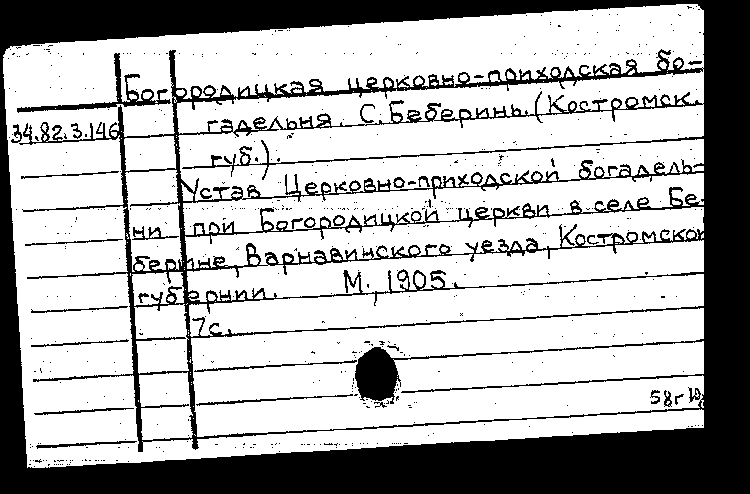 Богородицкая церковно-приходская бо-
34.82.3.146 гадельня. С. Беберинь. (Костромск.
губ.).
Устав Церковно-приходской богадель-
ни при Богородицкой церкви в селе Бе-
берине, Варнавинского уезда, Костромской
губернии. М., 1905.
7с.
58г